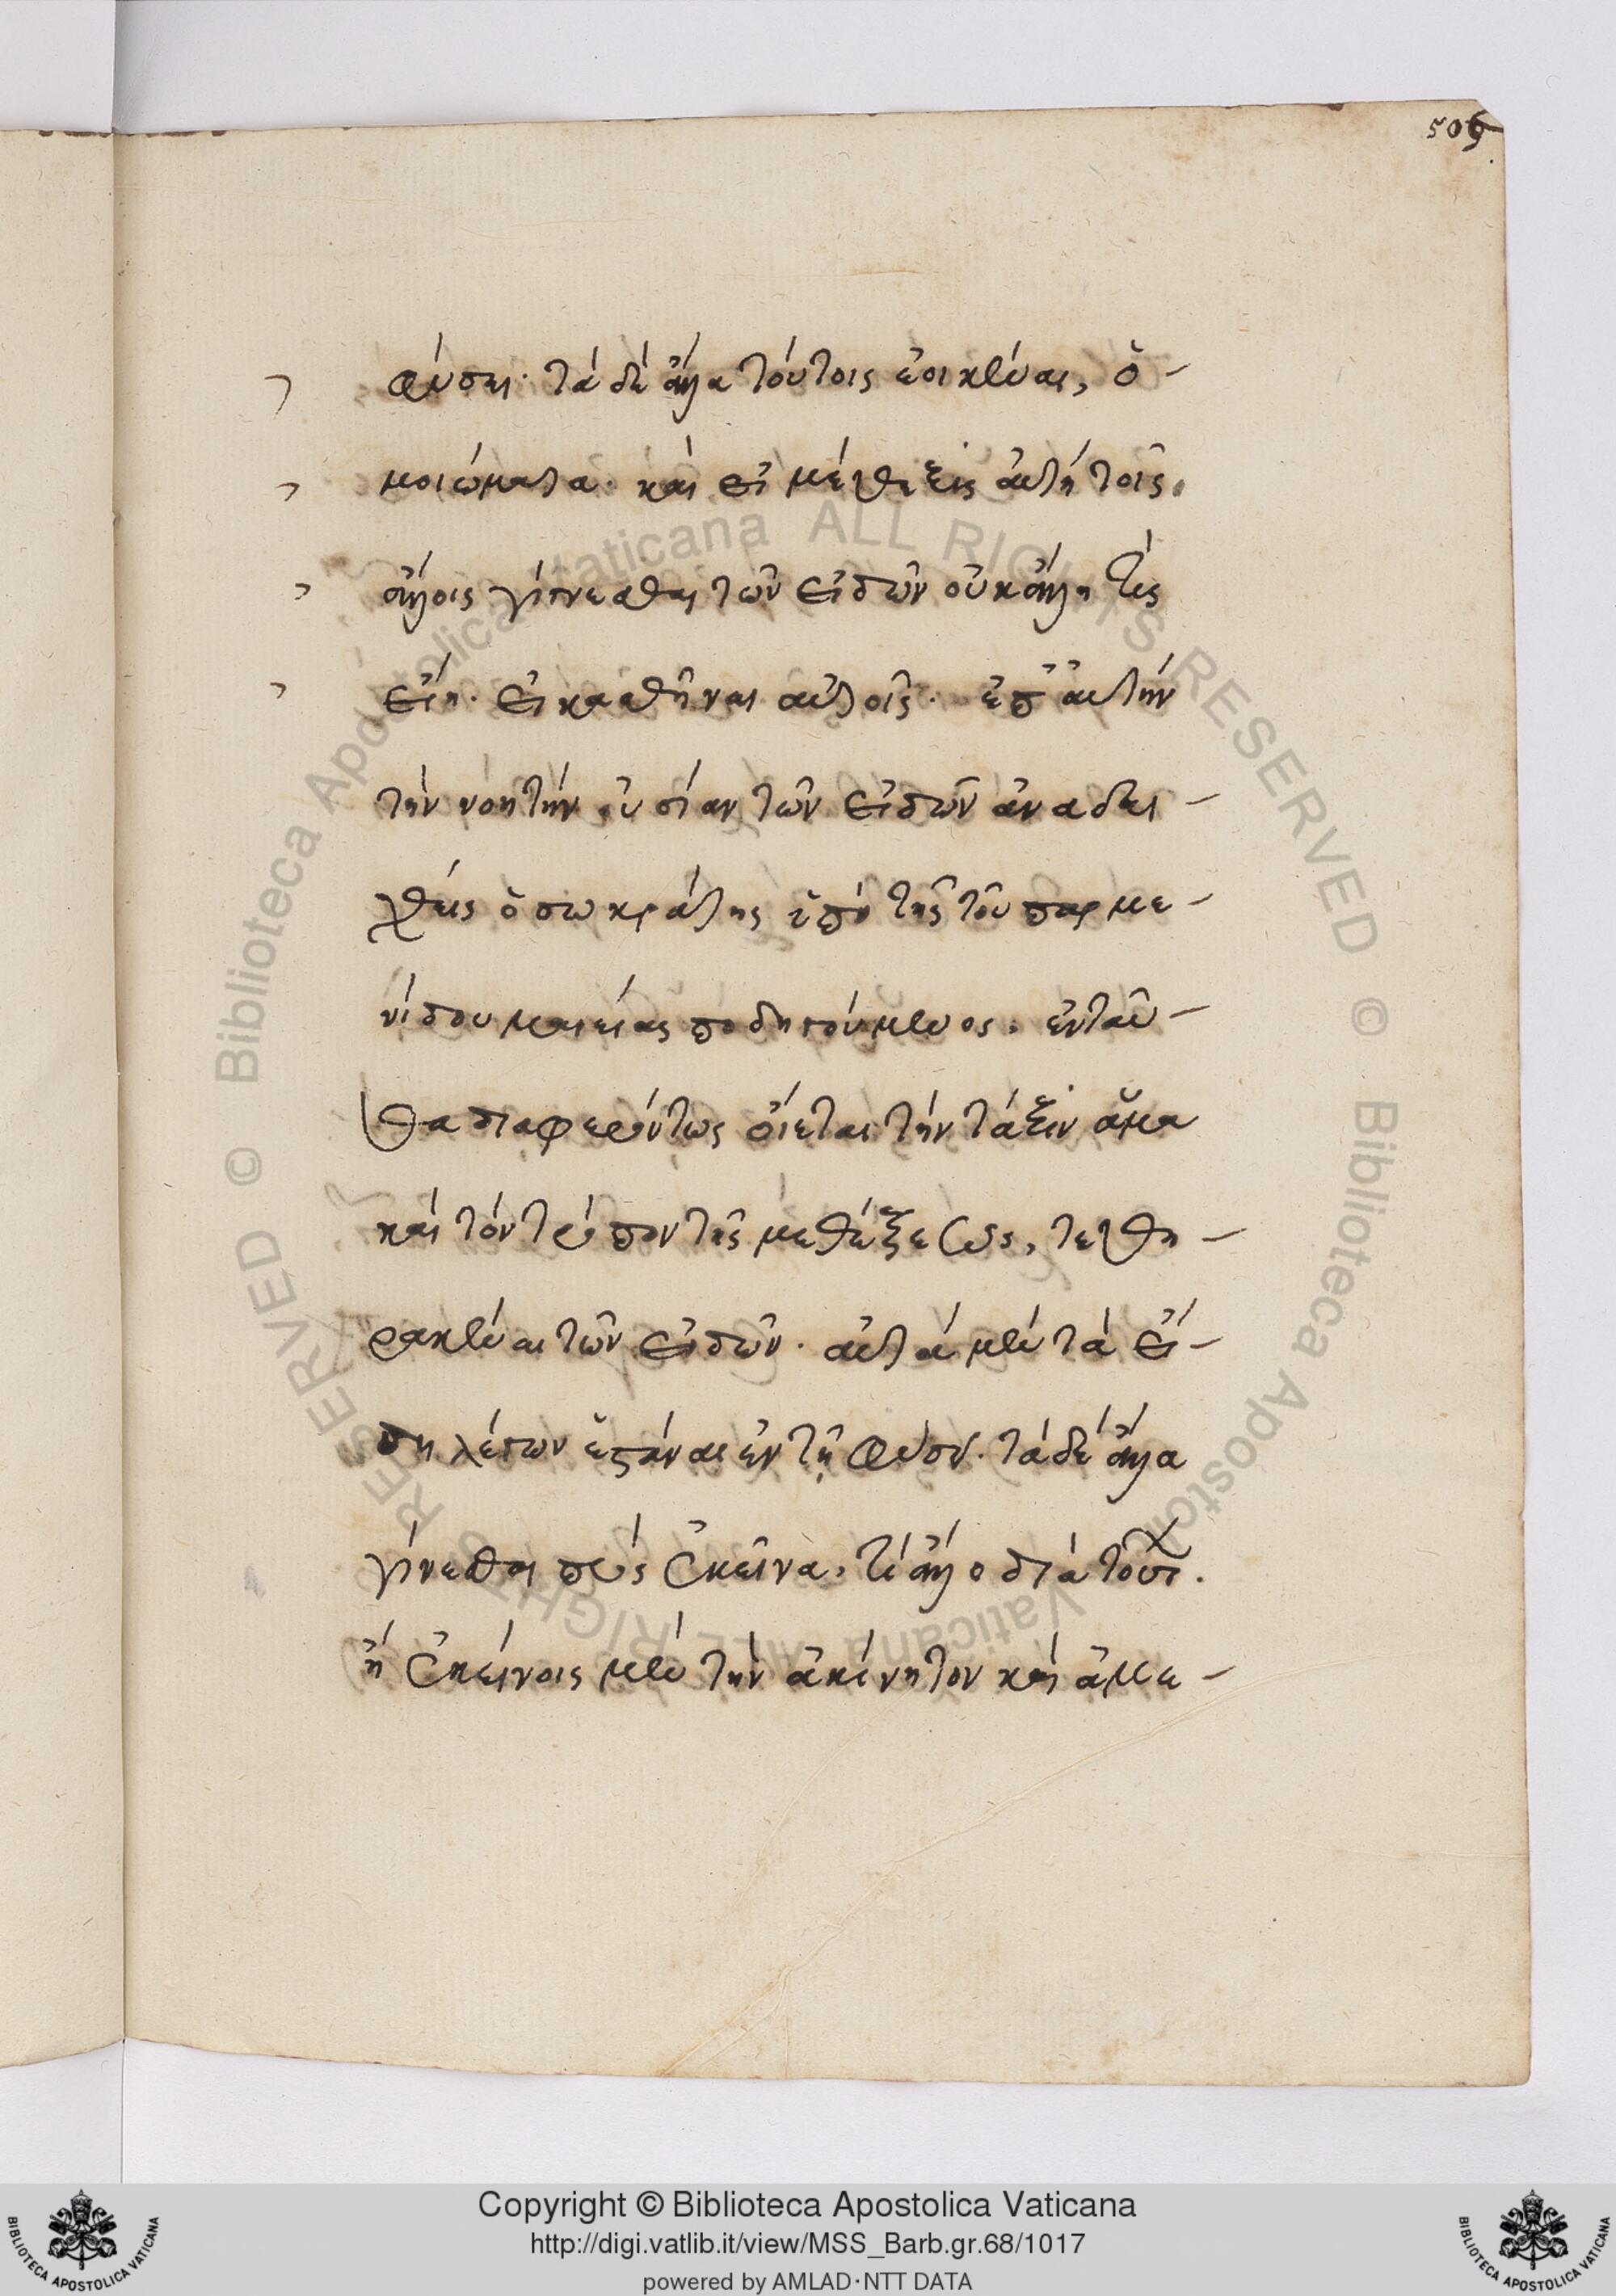 509
φύσει· τὰ δὲ ἄλλα τούτοις ἐοικέναι, ὁ-
μοιώματα· καὶ εἰ μέθεξις αὐτὴ τοῖς
ἄλλοις γίγνεσθαι τῶν εἰδῶν οὐκ ἄλλη τίς
εἴη· εἰκασθῆναι αὐτοῖς· ἐπ' αὐτὴν
τὴν νοητὴν οὐσίαν τῶν εἰδῶν ἀναδει-
χθεὶς ὁ σωκράτης ὑπὸ τῆς τοῦ παρμε-
νίδου μαιείας ποδηγούμενος. ἐνταῦ-
θα διαφερόντως οἴεται τὴν τάξιν ἅμα
καὶ τὸν τρόπον τῆς μεθέξεως, τεθη-
ρακέναι τῶν εἰδῶν· αὐτὰ μὲν τὰ εἴ-
δη λέγων ἑστάναι ἐν τῇ φύσει· τὰ δὲ ἄλλα
γίνεσθαι πρὸς ἐκεῖνα, τί ἄλλο διὰ τούτ.
ἢ ἐκείνοις μὲν τὴν ἀκίνητον καὶ ἀμε-
Copyright © Biblioteca Apostolica Vaticana
http://digi.vatlib.it/view/MSS_Barb.gr.68/1017
powered by AMLAD·NTT DATA
BIBLIOTECA APOSTOLICA VATICANA
BIBLIOTECA APOSTOLICA VATICANA
© Biblioteca Apostolica Vaticana ALL RIGHTS RESERVED © Biblioteca Apostolica Vaticana ALL RIGHTS RESERVED